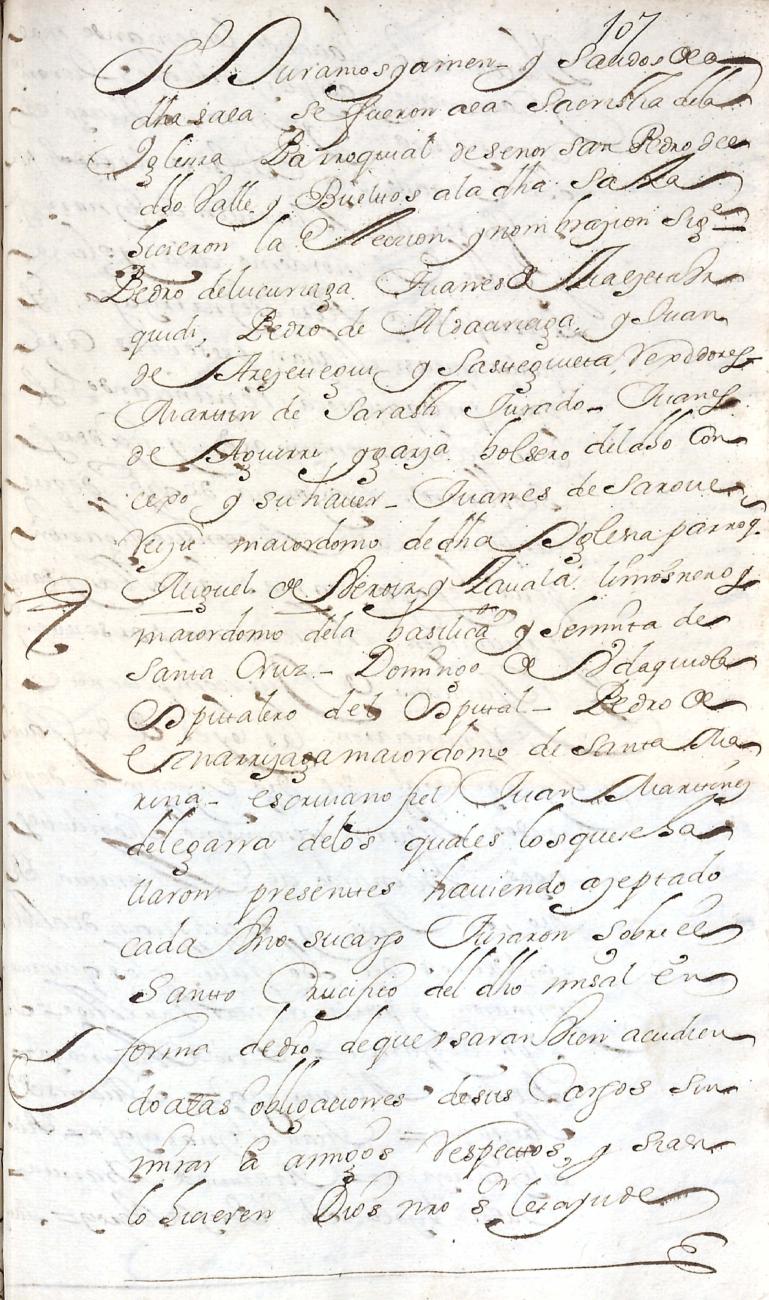 107
Si Juramos y amen_ y salidos de
dha sala se fueron a la Sacristia dela
Yglessia Parroquial de señor san Pedro de
dho Valle y Bueltos a la dha Sala
hicieron la Eleccion y nombrazion sigte
Pedro de lucuriaga Juanes de
quidi, Pedro de Aldauriaga, y Juan
de Arejeuegui y Sastiguieta, Rexidores
Martin de Sarasti Jurado_ Juanes
de Aguirre y garza bolsero del dho Con
cexo y su haver_ Juanes de Saroue
Veijti maiordomo de dha Yglesia parroql
Miguel de Beroiz y Zavala limosnero y
maiordomo dela basilica y Hermita de
Santa Cruz_ Domingo de
Ospitalero del Ospital_ Pedro de
Eznarriaga maiordomo de Santa Ma
rina_ escrivano fiel Juan Martinez
de legarra delos quales los que se ha
llaron presenttes haviendo azeptado
cada Uno su cargo Juraron sobre el
Santto Crucifico del dho missal en
forma de dro de que usaran bien acudien
do a las obligaciones de sus Cargos sin
mirar a amigos Respecttos, y si asi
lo hicieren Dios nro sr les ayude